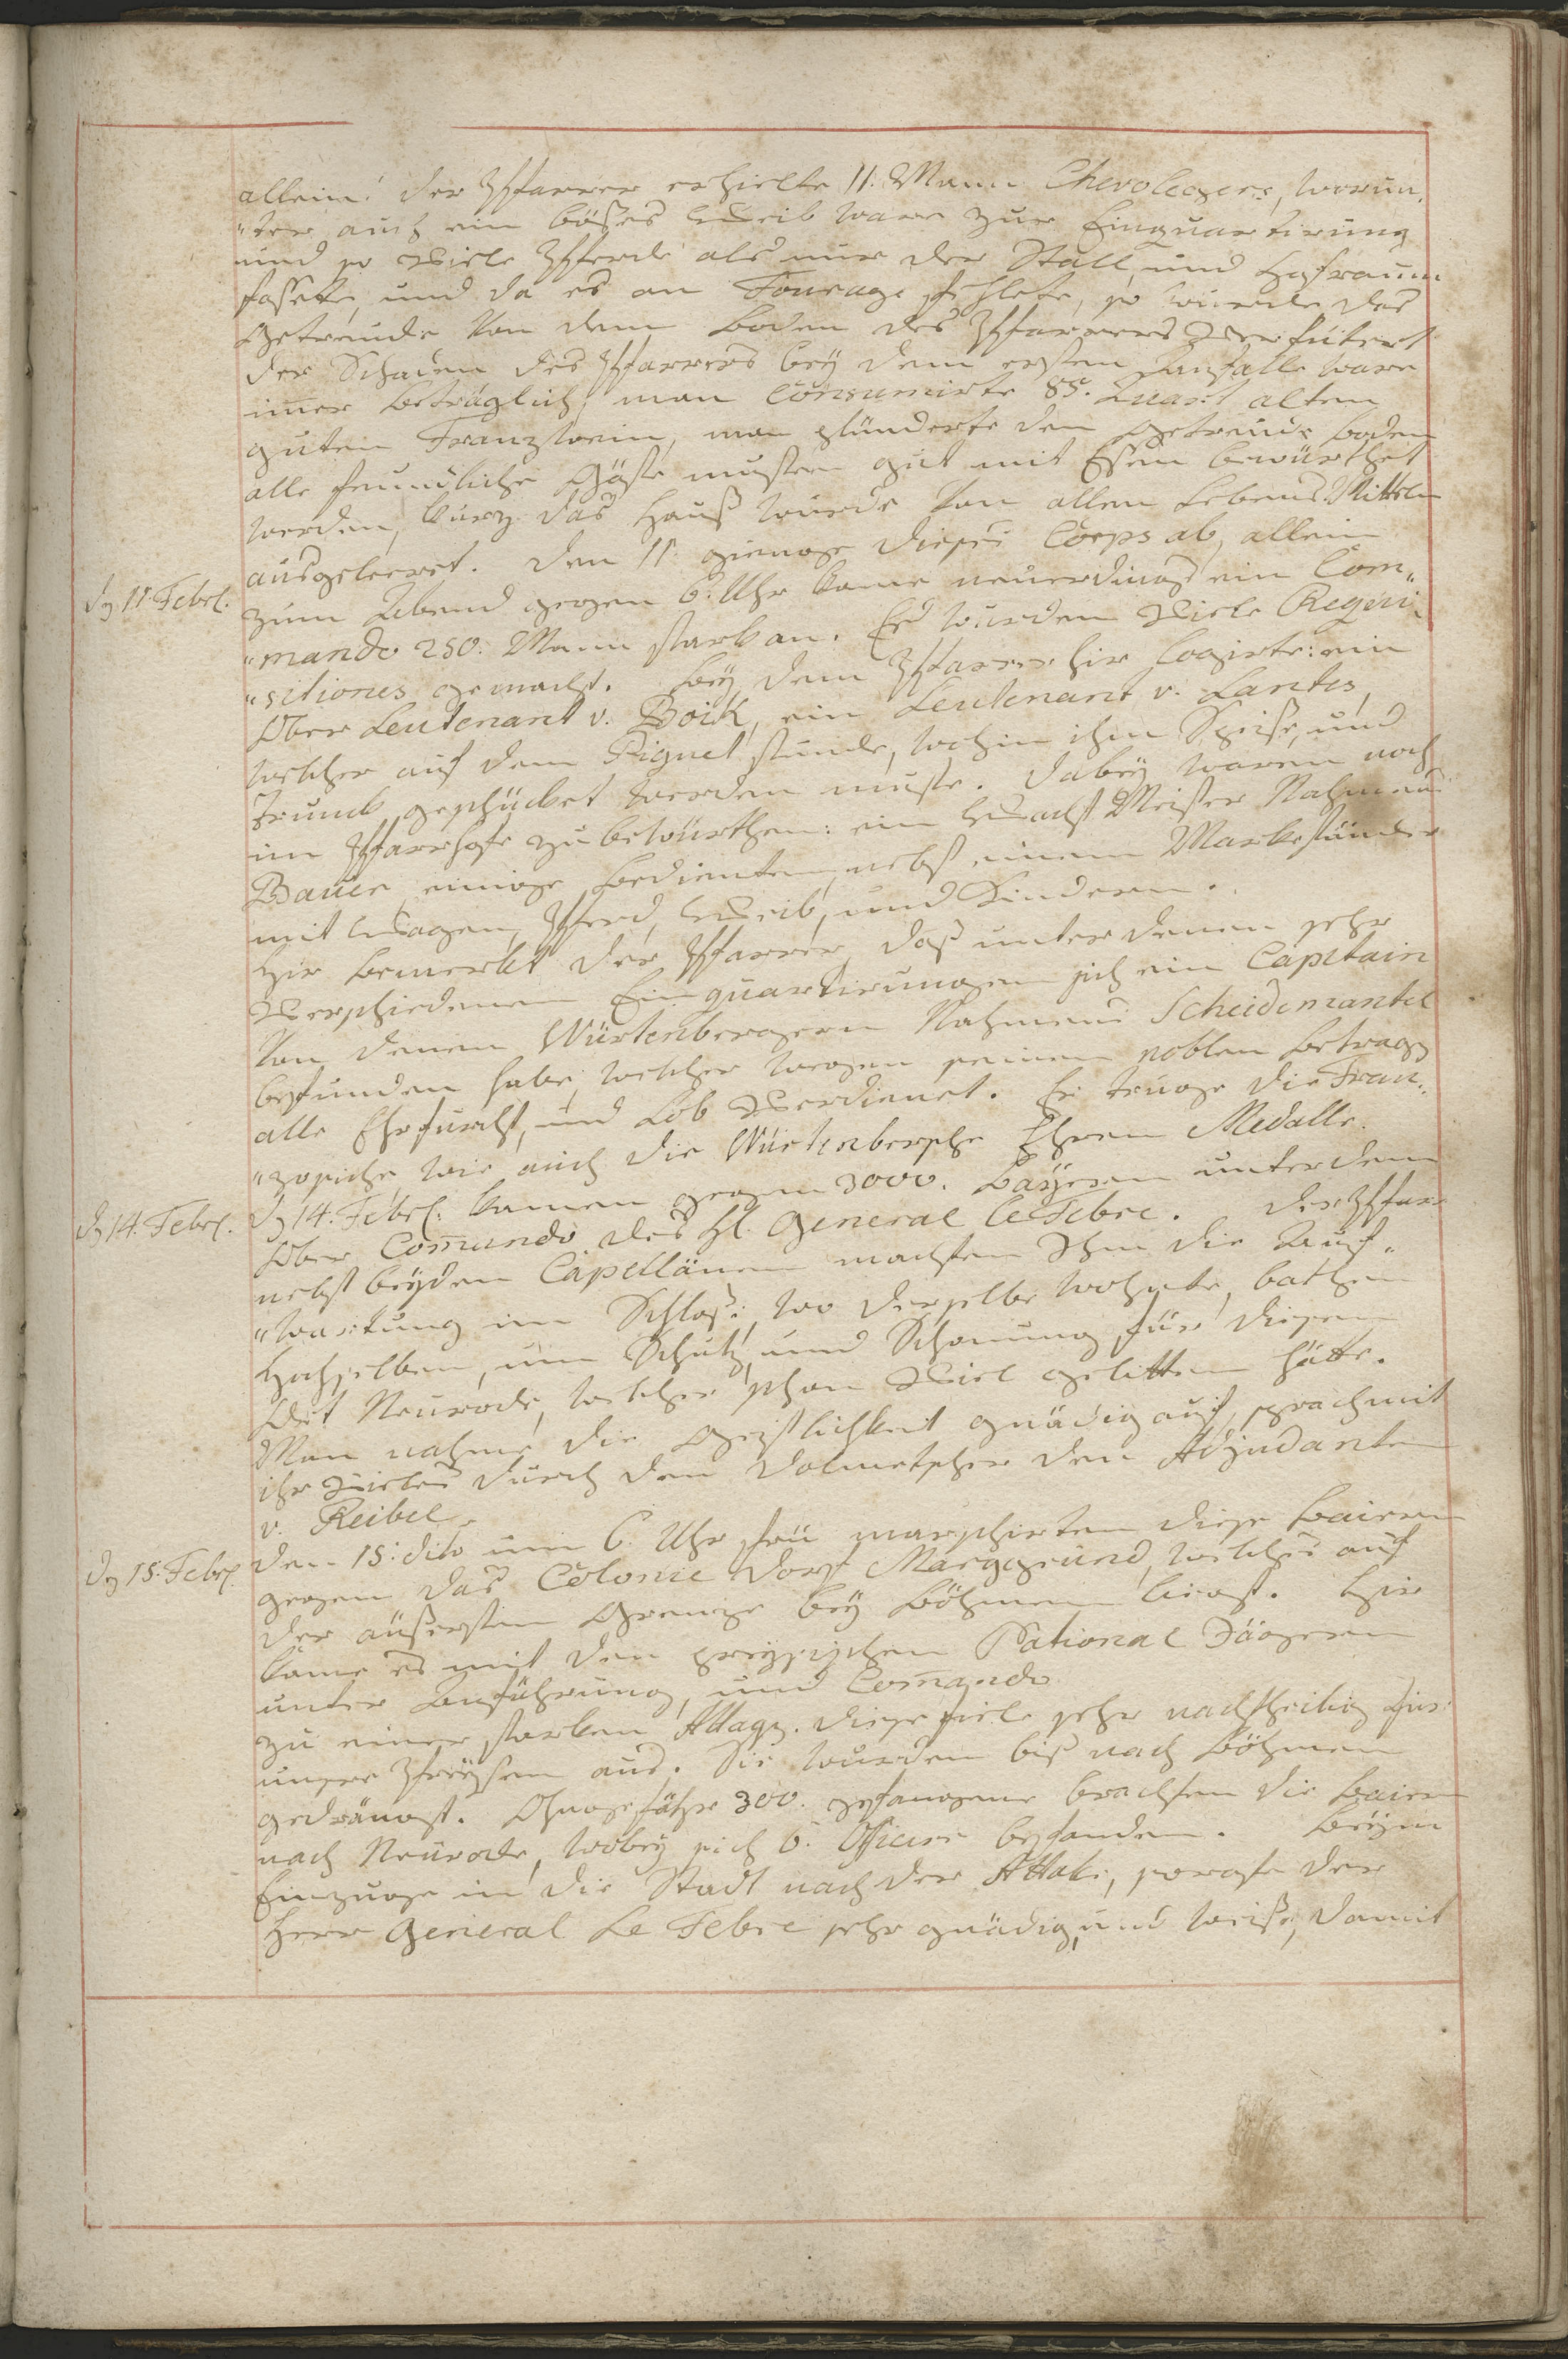 allein! der Pfarrer erhielte 11. Mann Chevolegers, worun„
„ter auch ein böses Weib ware zur Einquartirung
und so Viele Pferde als nur der Stall und Hofraum
fassete, und da es an Fourage fehlete, so wurde das
Getreude von dem Boden des Pfarrers Verfütert
der Schaden des Pfarrers bey dem ersten Anfalle ware
im̄er beträglich, man Consumirte 85. Quart alten
guten Franzwein, man plünderte den Getreude Boden
alle feundliche Gäste musten gut mit Essen bewürthet
werden, kurz das Hauß wurde von allen Lebens Mitteln
ausgeleeret. Den 11. gienge dieses Corps ab, allein
dẏ 11. Febr.
zum Abend gegen 6. Uhr kame neuerdings ein Com„
„mando 250. Mann stark an. Es wurden Viele Requi„
„sitiones gemacht. Bey dem Pfarrer hir Logirte: ein
Ober Leutenant v. Boik, ein Leutenant v. Lantes,
welcher auf dem Piquet stunde, wohin ihm Speise, und
Trunck geschücket werden muste. Dabey waren noch
im Pfarrhofe zu bewürthen: ein Wacht Meister Nahmens
Bauer, einige Bedienten, nebst einem Marketänder
mit Wagen, Pferd, Weib, und Kindern.
Hir bemerkt der Pfarrer, daß unter denen sehr
Verschiedenen Einquartirungen sich ein Capitain
von denen Würtenbergern Nahmens Scheidemantel
befunden habe, welcher wegen seinem noblen Betrag
alle Ehrfurcht, und Lob Verdienet. Er truge die Fran„
„zosiche wie auch die Würtenbersche Ehren Medalle.
dẏ 14. Febr.
dẏ 14. Febr. kamen gegen 3000. Bayern unter dem
Ober Com̄ando des H. General le Febre. Der Pfarr
nebst beyden Capellänen machten Ihm die Auf„
„wartung im Schloß, wo derselbe wohnte, bathen
Hochselben, um Schutz, und Schonung für diesen
Ort Neurode, welcher schon Viel gelitten hätte.
Man nahme die Geistlichkeit gnädig auf, sprach mit
ihr Vieles durch den Dolmetscher den Adjudanten
v. Reibel.
dẏ 15. Febr.
Den 15. dito um 6. Uhr frü marschirten diese Baiern
gegen das Colonie Dorf Marggrund, welches auf
der äußersten Grenze bey Böhmen liegt. Hir
kame es mit den preysischen National Jägern
unter Anführung, und Com̄ando
zu einer starken Attaqe. Diese fiele sehr nachtheilig für
unsre Preysen aus. Sie wurden biß nach Böhmen
gedrängt. Ohngefähr 300. gefangene brachten die Baiern
nach Neurode, wobey sich 6. Officiere befanden. Beym
Einzuge in die Stadt nach der Attake, sorgte der
Herr General Le Febre sehr gnädig, und weise, damit